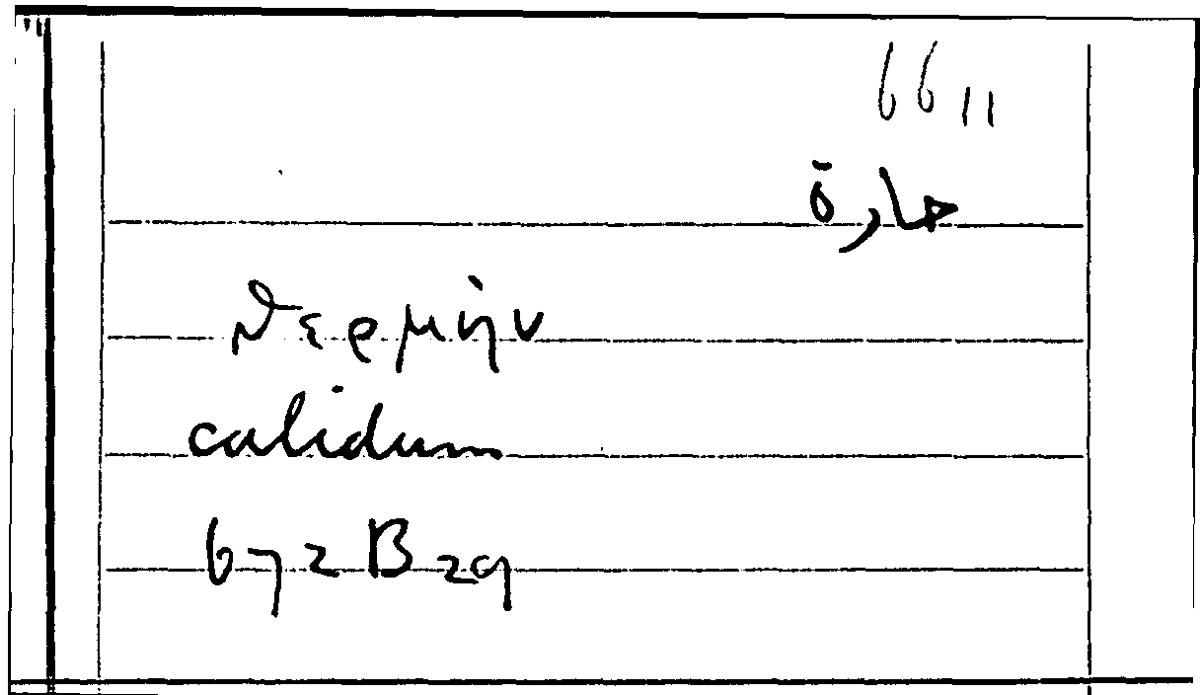 66,11
حارة
θερμήν
calidum
672 B 29